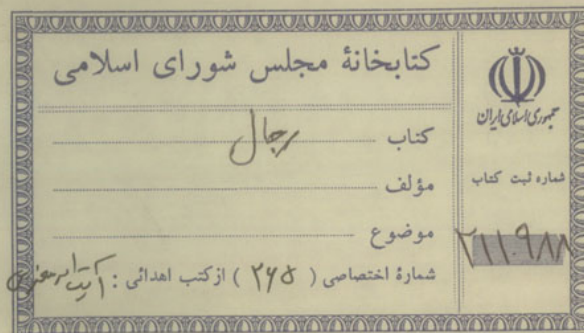 کتابخانهٔ مجلس شورای اسلامی
کتاب رجال
مؤلف
موضوع
شمارهٔ اختصاصی ( ۲۶۵ ) از کتب اهدائی :
جمهوری اسلامی ایران
شماره ثبت کتاب
۲۱۱۰۹۸۸